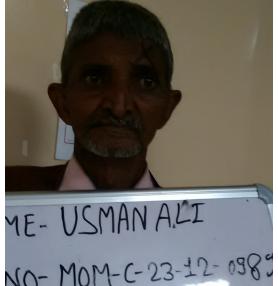 ME- USMAN ALI
NO- MOM-C-23-12-0989